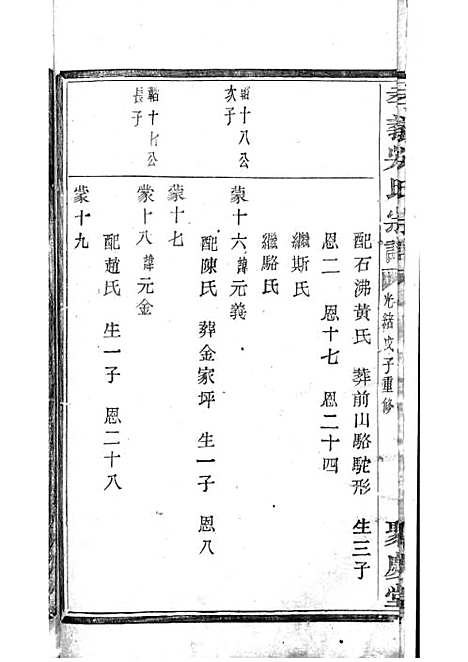 孝義吳氏宗譜
光緒戊子重修
聚慶堂
配石沸黃氏 葬前山駱駝形 生三子
恩二 恩十七 恩二十四
繼斯氏
繼駱氏
韜十八公
次子
蒙十六諱元義
配陳氏 葬金家坪 生一子 恩八
蒙十七
韜十七公
長子
蒙十八諱元金
配趙氏 生一子 恩二十八
蒙十九